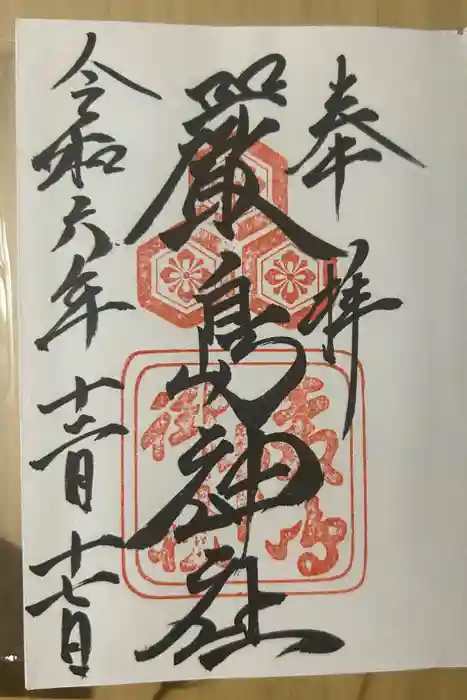 奉拝
嚴島神社
令和六年十二月十七日